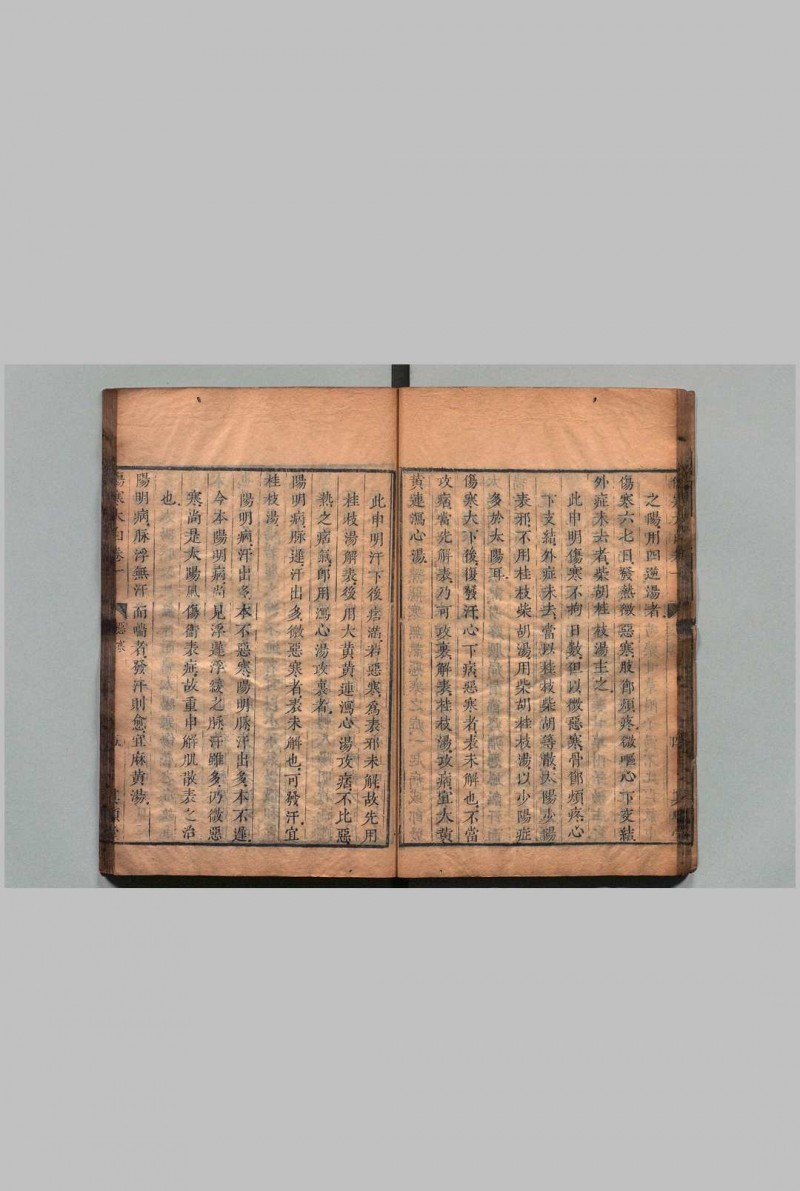 之陽用四逆湯者
傷寒六七日發熱微惡寒肢節煩疼微嘔心下支結
外症未去者柴胡桂枝湯主之
此申明傷寒不拘日數但以微惡寒骨節煩疼心
下支結外症未去當以桂枝柴胡等散太陽少陽
表邪不用桂枝柴胡湯用柴胡桂枝湯以少陽症
多於太陽耳
傷寒大下後復發汗心下痞惡寒者表未解也不當
攻痞當先解表乃可攻裏解表桂枝湯攻痞宜大黃
黃連瀉心湯
此申明汗下後痞滿若惡寒為表邪未解故先用
桂枝湯解表後用大黃黃連瀉心湯攻痞不比惡
熱之痞氣即用瀉心湯攻裏者
陽明病脉遲汗出多微惡寒者表未解也可發汗宜
桂枝湯
陽明病汗出多本不惡寒陽明脉汗出多本不遲
今本陽明病尚見浮遲浮緩之脉汗雖多仍微惡
寒尚是太陽風傷衛表症故重申解肌散表之治
也
陽明病脉浮無汗而喘者發汗則愈宜麻黃湯
傷寒大白卷一 惡寒